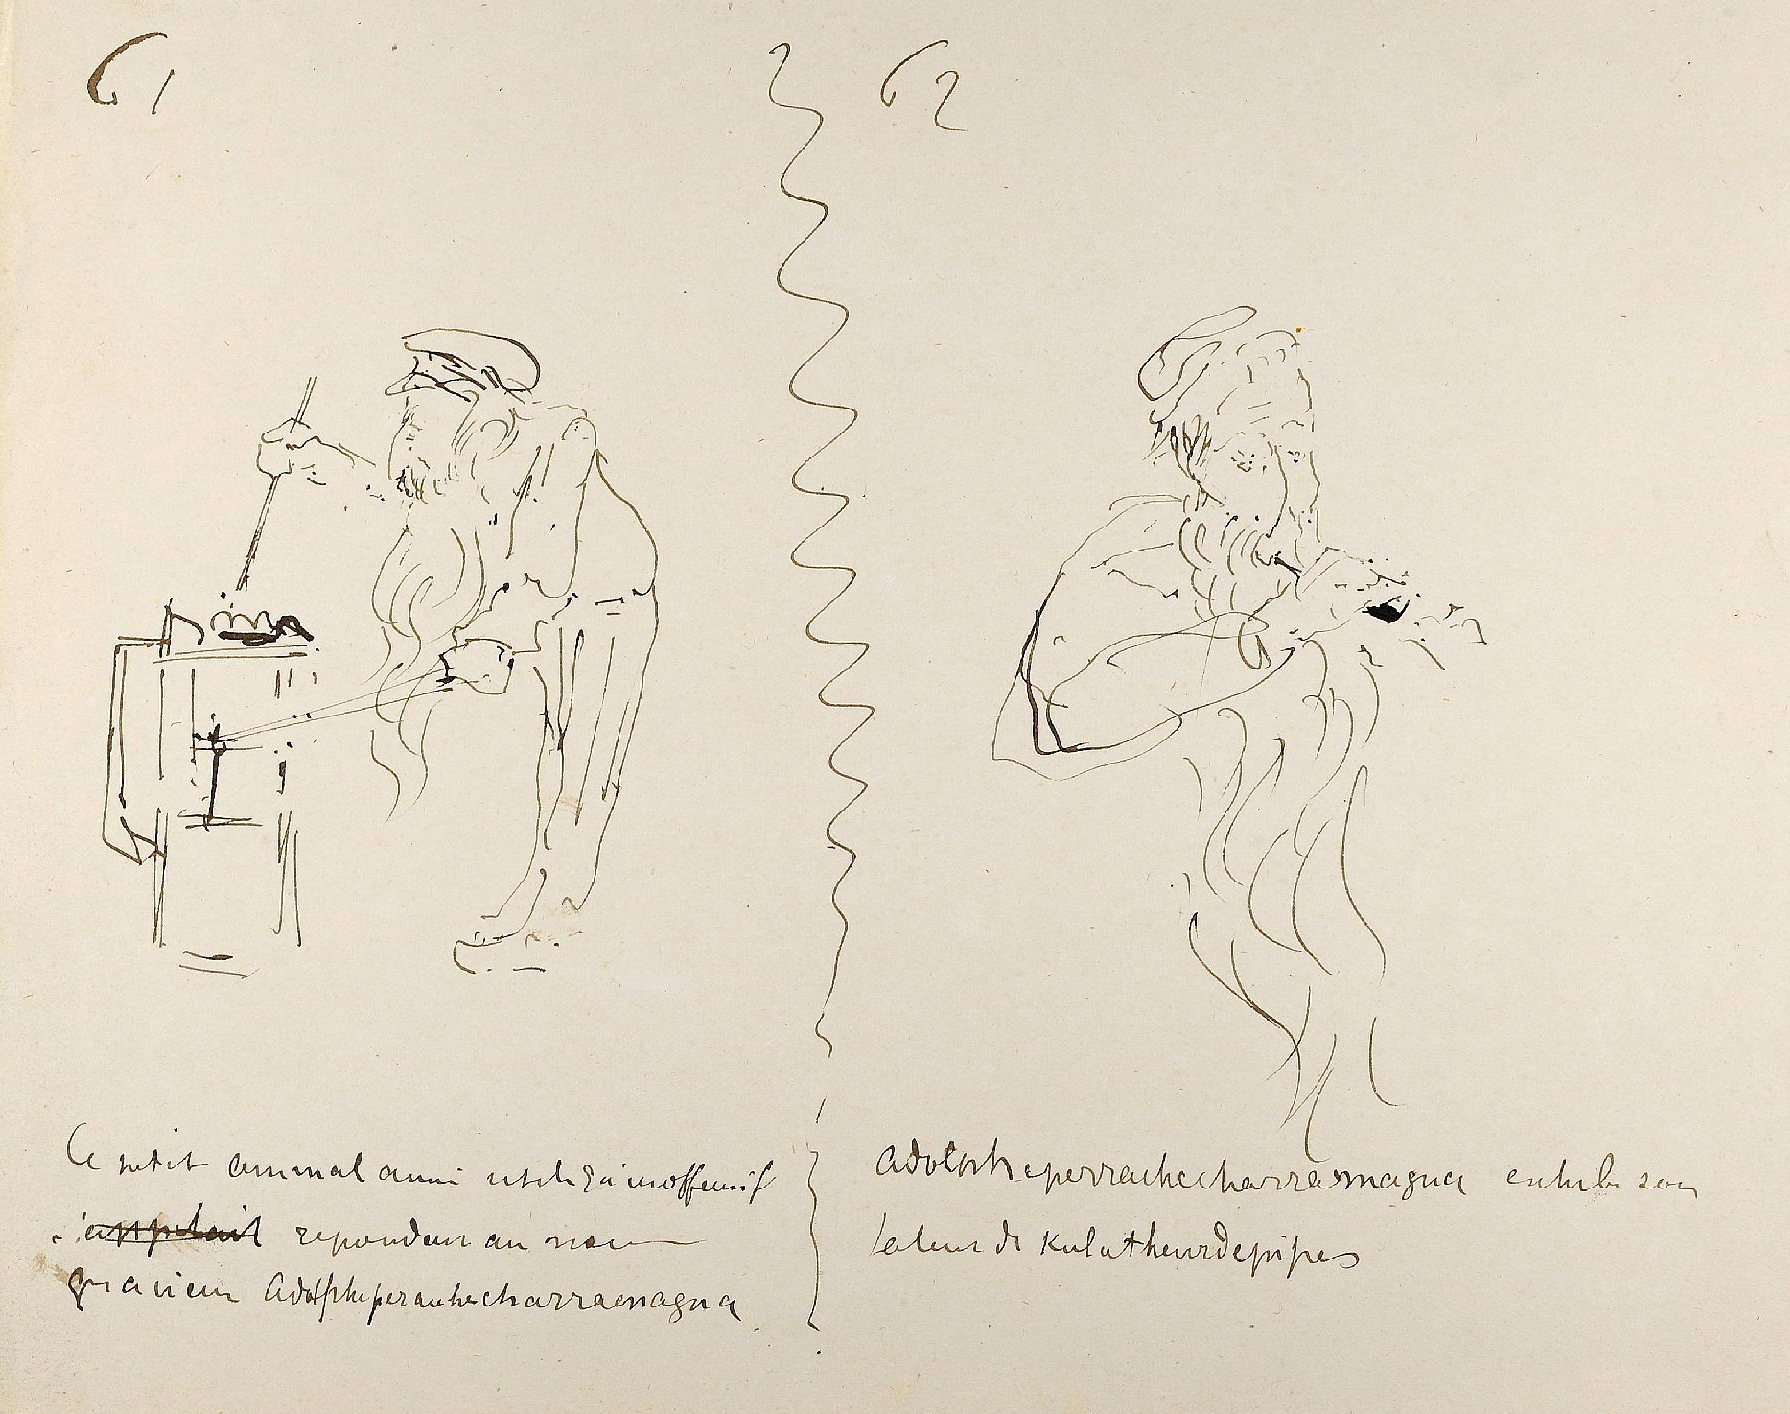 61
Ce petit animal aussi utile qu'inoffensif
repondau au nom
gracieux Adolpheperrachecharramagna
62
Adolpheperrachecharramagna exhibe son
talent de Kulotheurdepipes